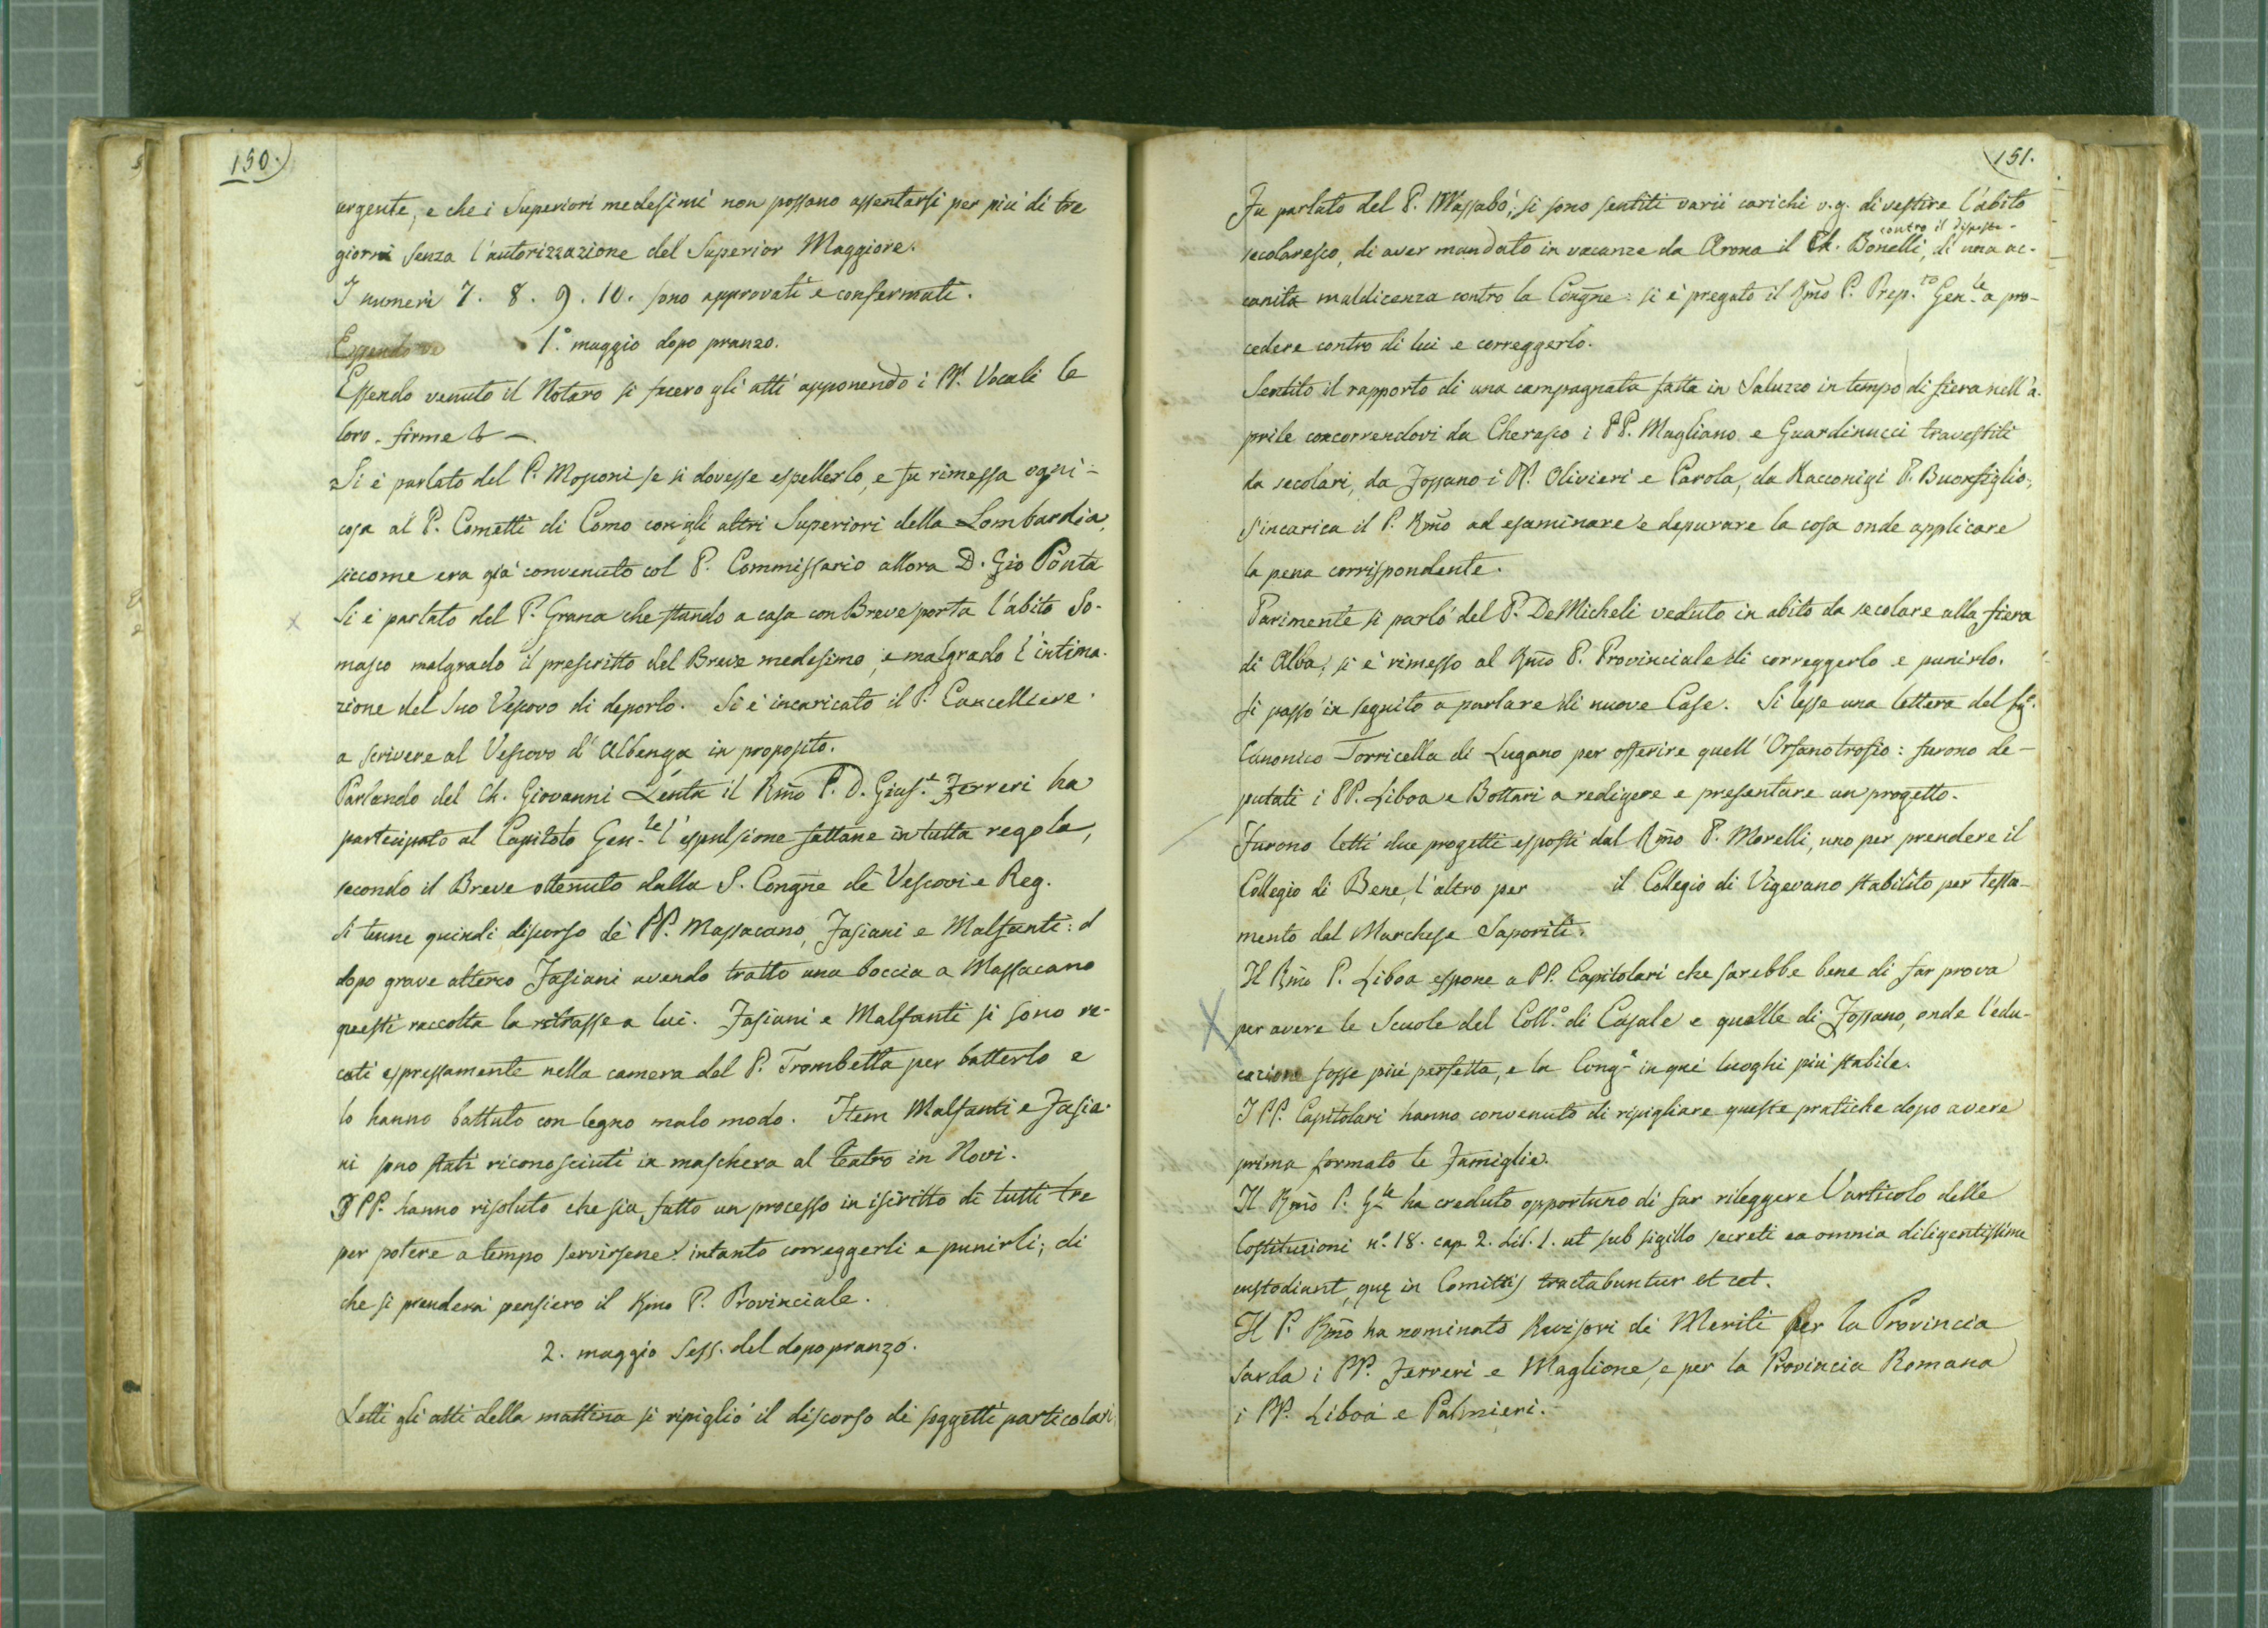 150.)
urgente, e che i Superiori medesimi non possano assentarsi per più di tre
giorni senza l'autorizzazione del Superior Maggiore.
I numeri 7. 8. 9. 10. sono approvati e confermati.
Essendo ve
1.° maggio dopo pranzo.
Essendo venuto il Notaro si fecero gli atti apponendo i PP. Vocali le
loro firme
Si è parlato del P. Mosconi se si dovesse espellerlo, e fu rimessa ogni
cosa al P. Cometti di Como con gli altri Superiori della Lombardia,
siccome era già convenuto col P. Commissario allora D. Gio Ponta
Si è parlato del P. Grana che stando a casa con Breve porta l'abito So-
masco malgrado il prescritto del Breve medesimo, e malgrado l'intima-
zione del suo Vescovo di deporlo. Si è incaricato il P. Cancelliere
a scrivere al Vescovo d'Albenga in proposito.
Parlando del Ch. Giovanni Lenta il Rmo P. D. Gius.e Ferreri ha
partecipato al Capitolo Gen.le l'espulsione fattane in tutta regola,
secondo il Breve ottenuto dalla S. Congne de' Vescovi e Reg.
Si tenne quindi discorso de' PP. Massacano, Fasiani e Malfanti: d
dopo grave alterco Fasiani avendo tratto una boccia a Massacano
questi raccolta la ritrasse a lui. Fasiani e Malfanti si sono re-
cati espressamente nella camera del P. Trombetta per batterlo e
lo hanno battuto con legno malo modo. Item Malfanti e Fasia-
ni sono stati riconosciuti in maschera al teatro in Novi.
I PP. hanno risoluto che sia fatto un processo in iscritto di tutti tre
per potere a tempo servirsene: intanto correggerli e punirli; di
che si prenderà pensiero il Rmo P. Provinciale.
2. maggio Sess. del dopo pranzo.
Letti gli atti della mattina si ripigliò il discorso di soggetti particolari
(151.
Fu parlato del P. Massabò; si sono sentiti varii carichi v.g. di vestire l'abito
contro il disposto
secolaresco, di aver mandato in vacanze da Arona il Ch. Bonelli, di una ac-
canita maldicenza contro la Congne: si è pregato il Rmo P. Prep.to Gen.le a pro-
cedere contro di lui e correggerlo.
Sentito il rapporto di una campagnata fatta in Saluzzo in tempo di fiera nell'a-
prile concorrendovi da Cherasco i PP. Magliano e Guardinucci travestiti
da secolari, da Fossano i PP. Olivieri e Parola, da Racconigi P. Buonfiglio,
s'incarica il P. Rmo ad esaminare e depurare la cosa onde applicare
la pena corrispondente.
Parimente si parlò del P. DeMicheli veduto in abito da secolare alla fiera
di Alba; si è rimesso al Rmo P. Provinciale di correggerlo e punirlo.
Si passò in seguito a parlare di nuove Case. Si lesse una lettera del Sig.
Canonico Torricella di Lugano per offerire quell'Orfanotrofio: furono de-
putati i PP. Liboa e Bottari a redigere e presentare un progetto.
Furono letti due progetti esposti dal Rmo P. Morelli, uno per prendere il
Collegio di Bene, l'altro per il Collegio di Vigevano stabilito per testa-
mento dal Marchese Saporiti.
Il Rmo P. Liboa espone a PP. Capitolari che sarebbe bene di far prova
per avere le Scuole del Coll.° di Casale e quelle di Fossano, onde l'edu-
cazione fosse più perfetta, e la Cong.e in quei luoghi più stabile.
I PP. Capitolari hanno convenuto di ripigliare queste pratiche dopo avere
prima formato le Famiglie.
Il Rmo P. G.le ha creduto opportuno di far rileggere l'articolo delle
Costituzioni n.° 18. cap. 2. Lib. 1. ut sub sigillo secreti ea omnia diligentissime
custodiant, quę in Comitiis tractabuntur et cet.
Il P. Rmo ha nominato Revisori di Meriti per la Provincia
Sarda i PP. Ferreri e Maglione, e per la Provincia Romana
i PP. Liboa e Palmieri.